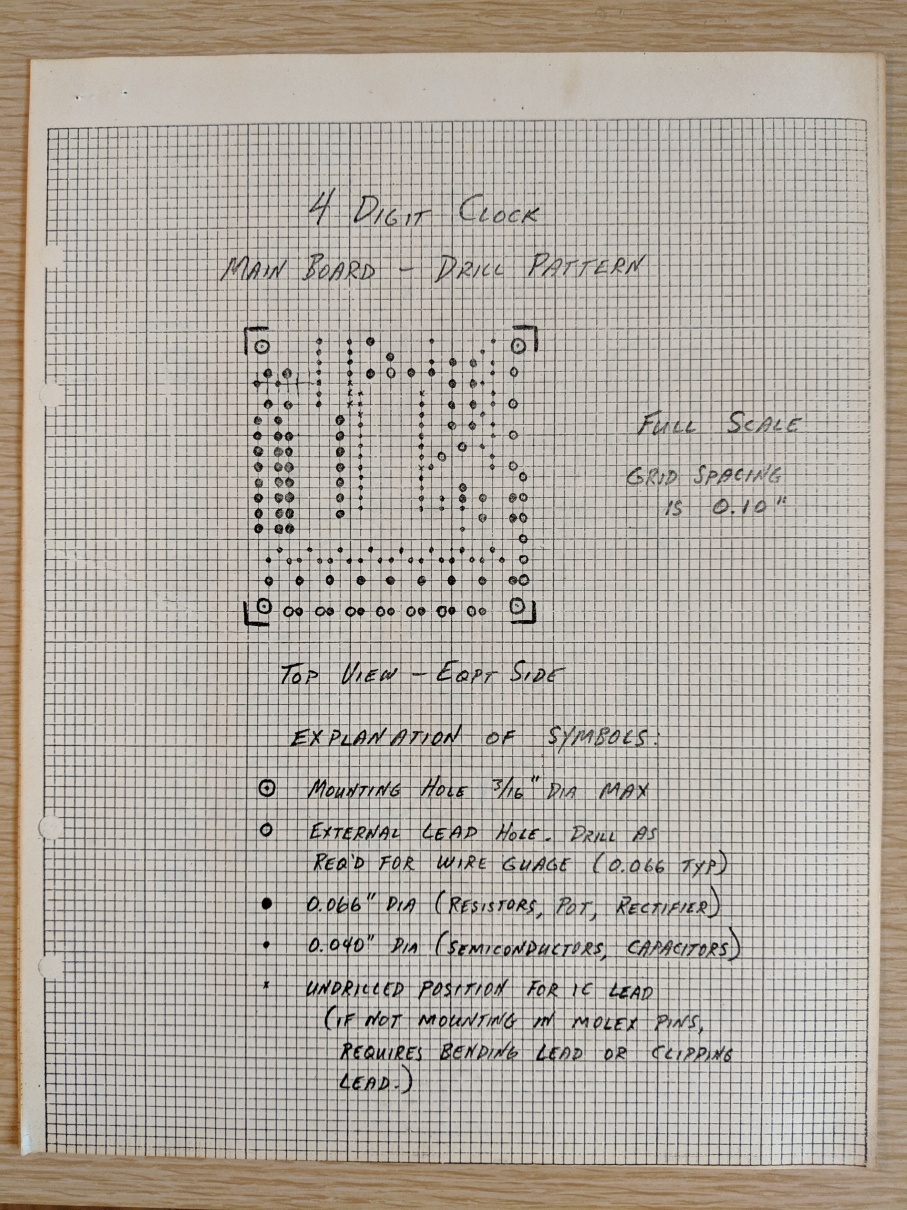 4 DIGIT CLOCK
MAIN BOARD - DRILL PATTERN
FULL SCALE
GRID SPACING
IS 0.10"
TOP VIEW - EQPT SIDE
EXPLANATION OF SYMBOLS:
MOUNTING HOLE 3/16" DIA MAX
EXTERNAL LEAD HOLE. DRILL AS
REQ'D FOR WIRE GUAGE (0.066 TYP)
0.066" DIA (RESISTORS, POT, RECTIFIER)
0.040" DIA (SEMICONDUCTORS, CAPACITORS)
x UNDRILLED POSITION FOR IC LEAD
(IF NOT MOUNTING IN MOLEX PINS,
REQUIRES BENDING LEAD OR CLIPPING
LEAD.)